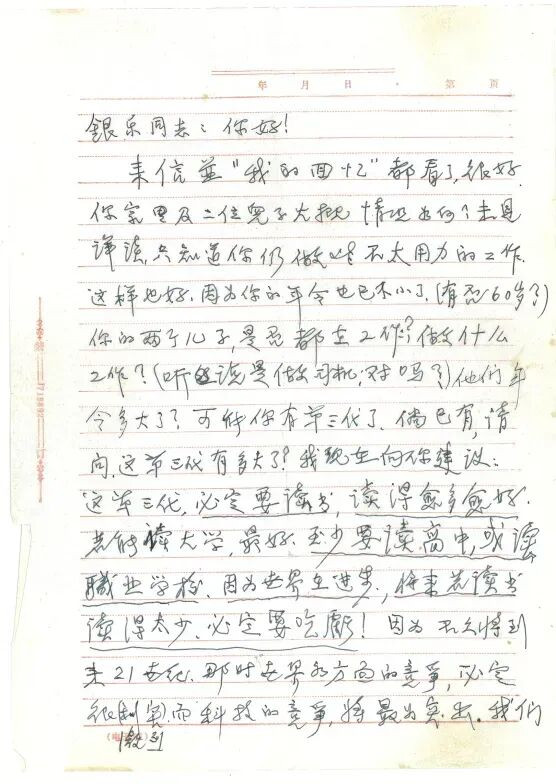 年 月 日 第 页
銀乐同志：你好！
来信並“我的回忆”都看了，很好.
你家里及二位兒子大概情况如何？未見
详谈，只知道你仍做些不太用力的工作，
这样也好，因为你的年令也已不小了，(有否60岁？)
你的两个儿子，是否都在工作？做什么
工作？(听说是做司机，对吗？)他们年
令多大了？可能你有第三代了，倘已有，请
问，这第三代有多大了？我现在向你建议：
这第三代，必定要读书，读得愈多愈好，
若能读大学，最好，至少要读高中，或读
職业学校，因为世界在进步，将来若读书
读得太少，必定要吃虧！因为不久将到
来21世纪，那时世界各方面的竞爭，必定
很刺害，而科技的竞爭，将最为突出。我们
激烈